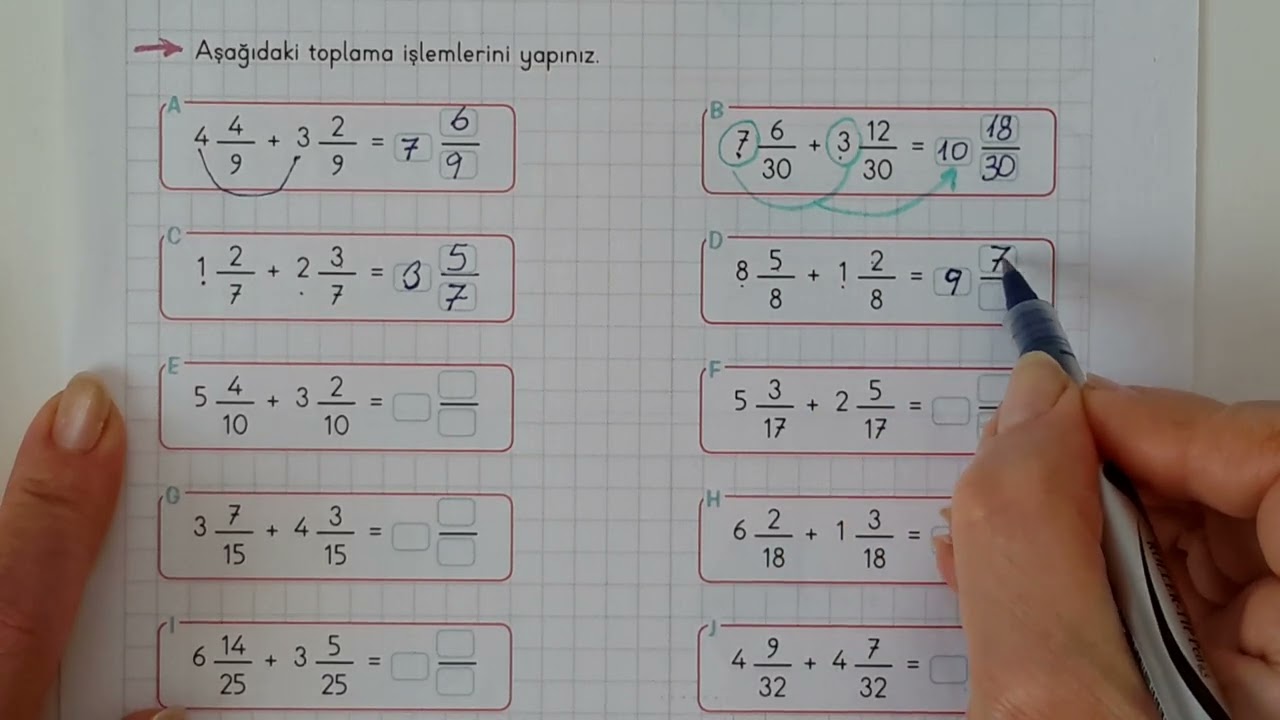 Aşağıdaki toplama işlemlerini yapınız.
A
4 4/9 + 3 2/9 = 7 6/9
B
7 6/30 + 3 12/30 = 10 18/30
C
1 2/7 + 2 3/7 = 3 5/7
D
8 5/8 + 1 2/8 = 9 7
E
5 4/10 + 3 2/10 =
F
5 3/17 + 2 5/17 =
G
3 7/15 + 4 3/15 =
H
6 2/18 + 1 3/18 =
I
6 14/25 + 3 5/25 =
J
4 9/32 + 4 7/32 =